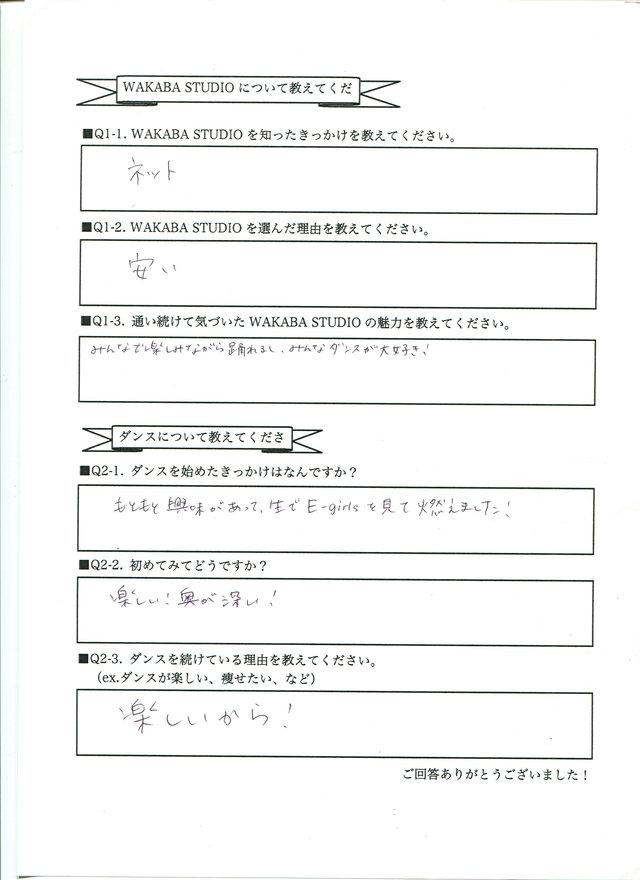 WAKABA STUDIO について教えてくだ
■Q1-1. WAKABA STUDIO を知ったきっかけを教えてください。
ネット
■Q1-2. WAKABA STUDIO を選んだ理由を教えてください。
安い
■Q1-3. 通い続けて気づいた WAKABA STUDIO の魅力を教えてください。
みんなで楽しみながら踊れるし、みんなダンスが大好き!
ダンスについて教えてくださ
■Q2-1. ダンスを始めたきっかけはなんですか？
もともと興味があって、生で E-girls を見て燃えました!
■Q2-2. 初めてみてどうですか？
楽しい! 奥が深い!
■Q2-3. ダンスを続けている理由を教えてください。
(ex.ダンスが楽しい、痩せたい、など)
楽しいから!
ご回答ありがとうございました！